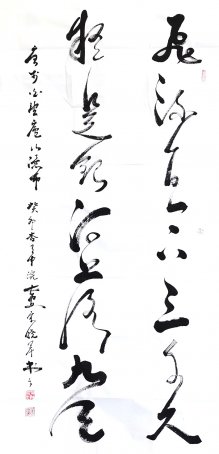 飛流直下三千尺
疑是銀河落九天
李白望廬山瀑布 癸卯春